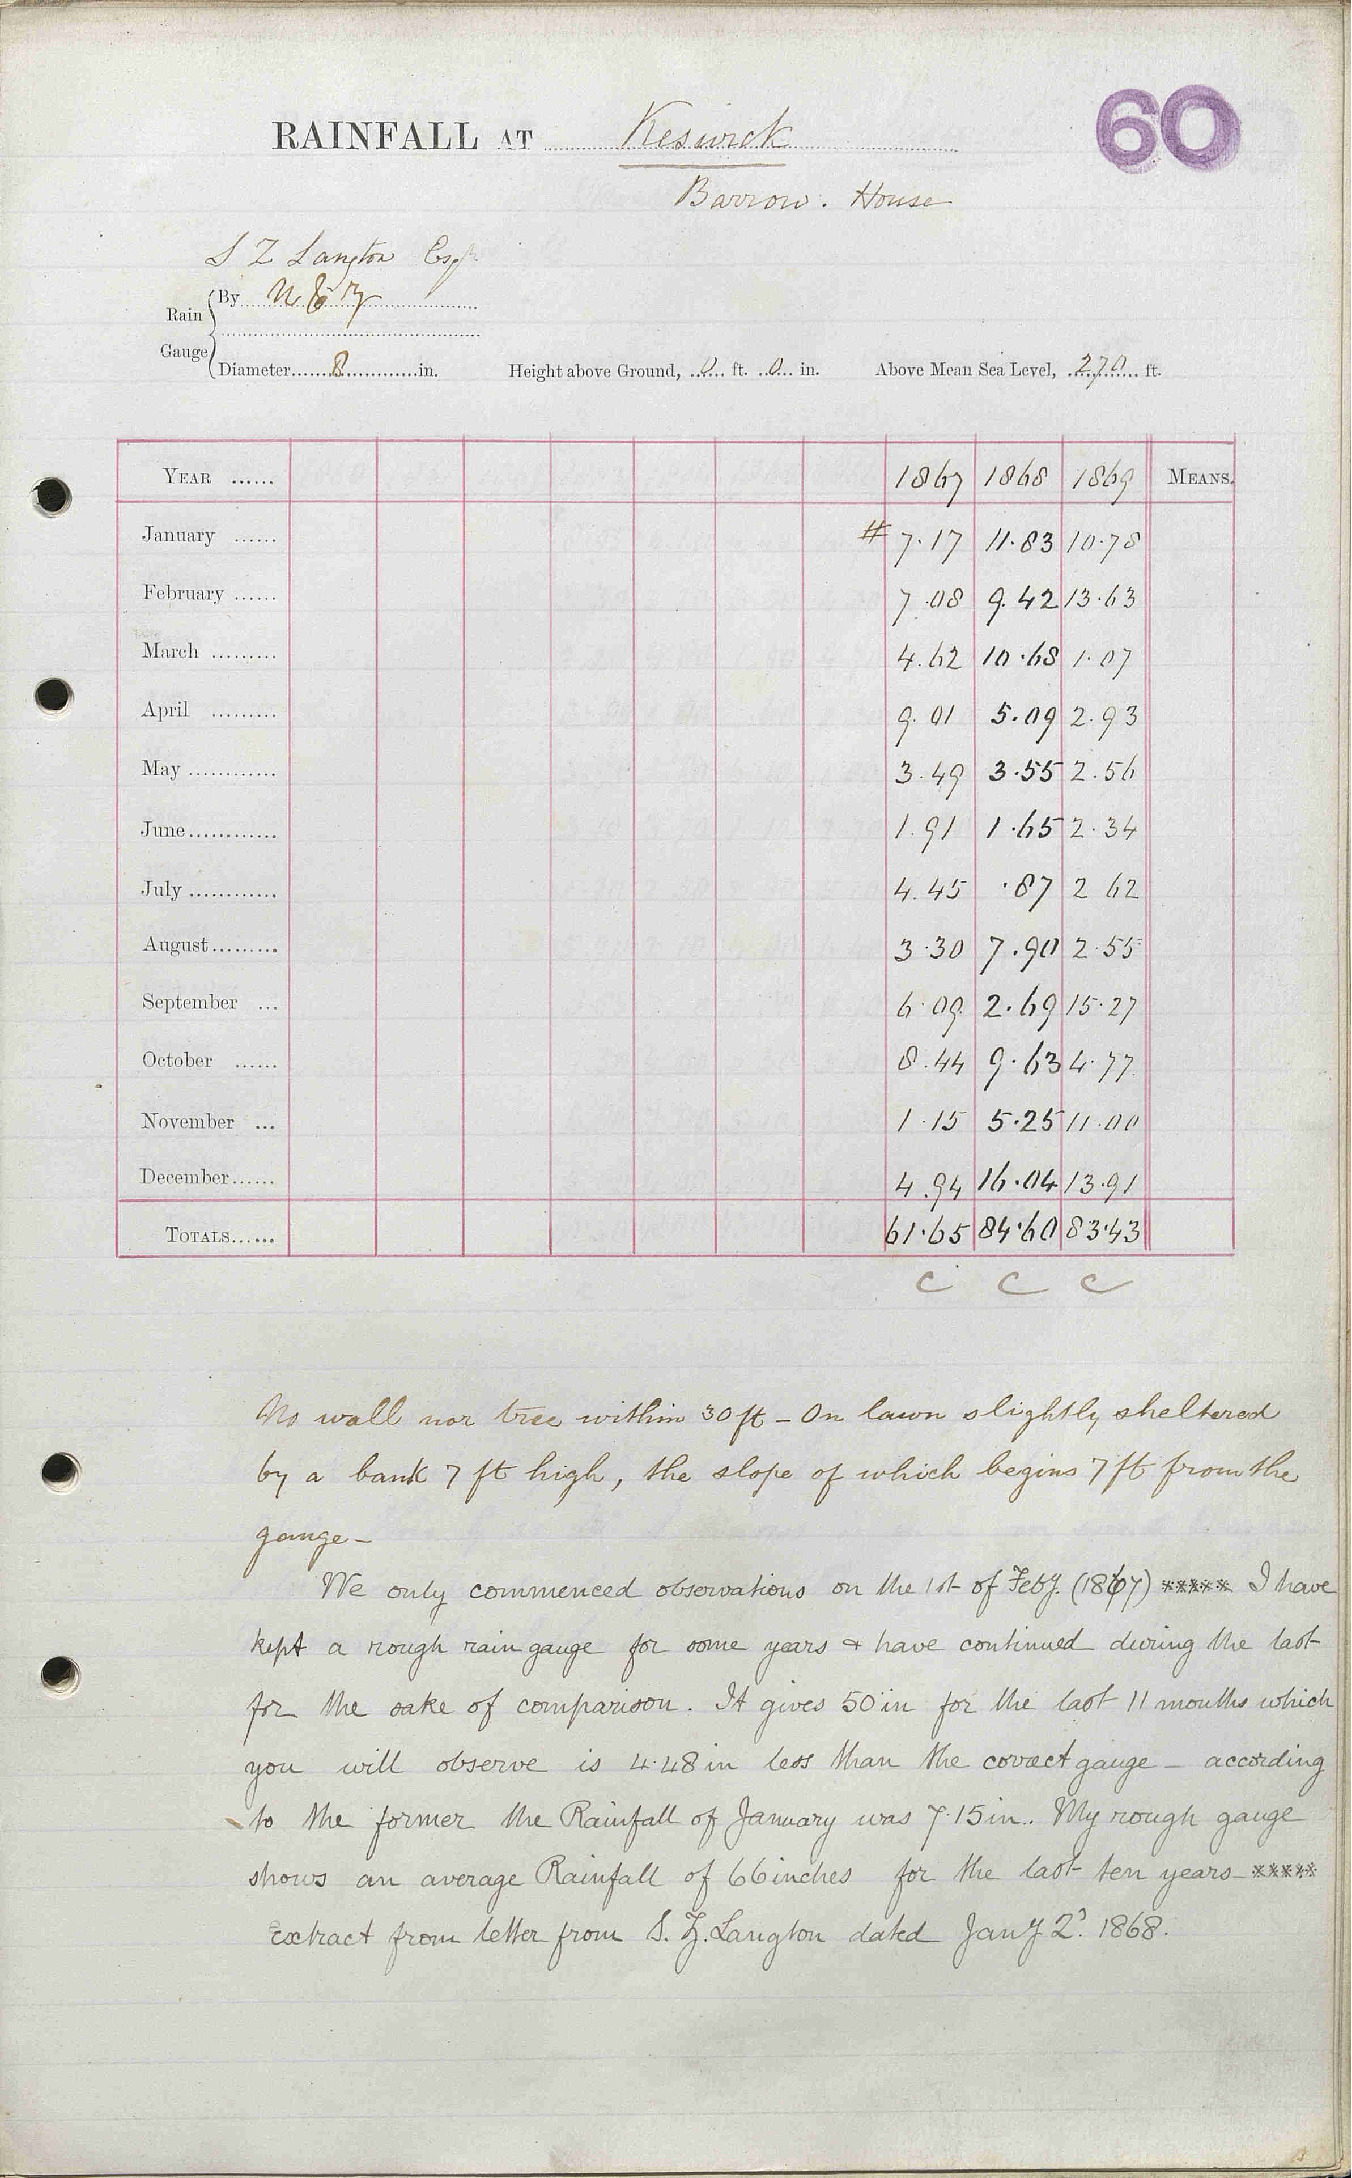 60
RAINFALL AT Keswick
Barrow House
S Z Langton Esqr
Rain Gauge
By N & Z
Diameter 8 in. Height above Ground, 0 ft. 0 in. Above Mean Sea Level, 270 ft.
YEAR 1867 1868 1869 MEANS.
January # 7.17 11.83 10.78
February 7.08 9.42 13.63
March 4.62 10.68 1.07
April 9.01 5.09 2.93
May 3.49 3.55 2.56
June 1.91 1.65 2.34
July 4.45 .87 2 62
August 3.30 7.90 2.55
September 6.09 2.69 15.27
October 8.44 9.63 4.77
November 1.15 5.25 11.00
December 4.94 16.04 13.91
TOTALS 61.65 84.60 83.43
C C C
No wall nor tree within 30 ft - On lawn slightly sheltered
by a bank 7 ft high, the slope of which begins 7 ft from the
gauge -
We only commenced observations on the 1st of Feby. (1867) ***** I have
kept a rough rain gauge for some years & have continued during the last
for the sake of comparison. It gives 50 in for the last 11 months which
you will observe is 4.48 in less than the correct gauge - according
to the former the Rainfall of January was 7.15 in.. My rough gauge
shows an average Rainfall of 66 inches for the last ten years - *****
Extract from letter from S. Z. Langton dated Jany 2d. 1868.